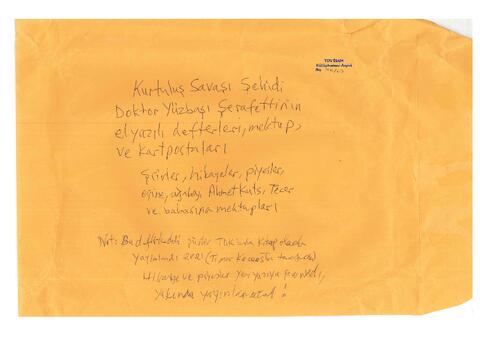 TDV İSAM
Kütüphanesi Arşivi
No
Kurtuluş Savaşı Şehidi
Doktor Yüzbaşı Şerafettin'in
elyazılı defterleri, mektup,
ve kartpostaları
Şiirler, hikayeler, piyesler,
eşine, ağabeyi Ahmet Kutsi Tecer
ve babasına mektupları
Not: Bu defterlerdeki şiirler TDK'unda kitap olarak
yayımlandı 2021 (Timur Kocaoğlu tarafından)
Hikaye ve piyesler yeni yazıya
yakında yayınlanacak!